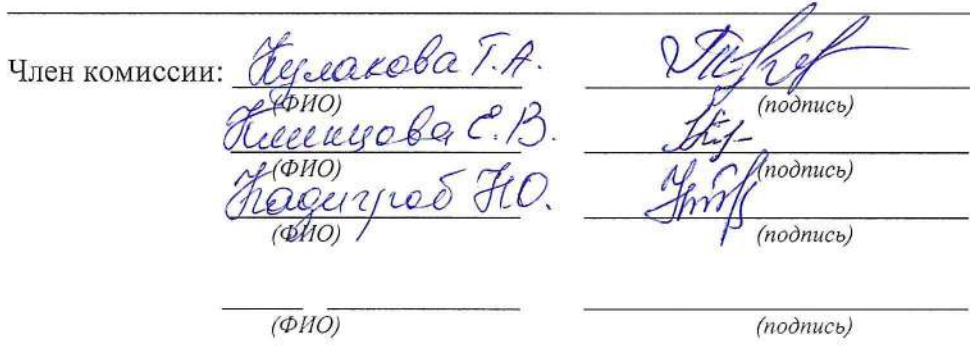 Член комиссии: Кулакова Т.А.
(ФИО) (подпись)
Климцова Е.В.
(ФИО) (подпись)
Надигроб Н.О.
(ФИО) (подпись)
(ФИО) (подпись)